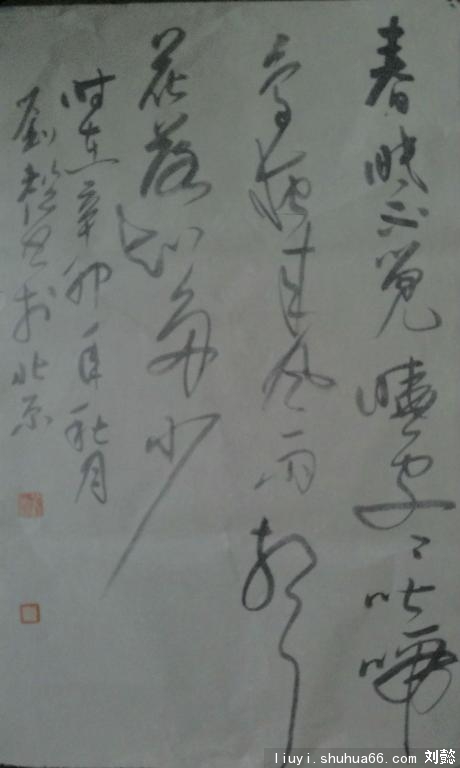 春眠不觉曉处〻闻啼
鸟夜来风雨声
花落知多少
时在辛卯年秋月
劉懿书於北京
liuyi.shuhua66.com 刘懿